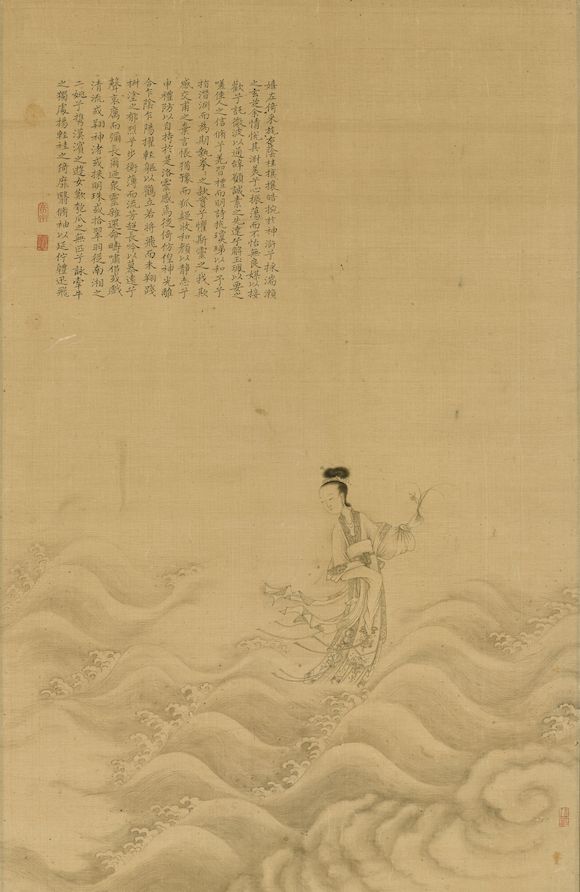 嬉左倚采旄右蔭桂旗攘皓捥於神滸兮採湍瀨
之玄芝余情悅其淑美兮心振蕩而不怡無良媒以接
歡兮託微波以通辭願誠素之先達兮解玉珮以要之
嗟佳人之信脩兮羌習禮而明詩抗瓊珶以和予兮
指潛淵而為期執拳〻之款實兮懼斯靈之我欺
感交甫之棄言悵猶豫而狐疑收和顏以靜志兮
申禮防以自持於是洛靈感焉徙倚仿偟神光離
合乍陰乍陽擢輕軀以鶴立若將飛而未翔踐
椒塗之郁烈兮步衡薄而流芳超長吟以慕遠兮
聲哀厲而彌長爾迺衆靈雜遝命疇嘯侶或戲
清流或翔神渚或採明珠或拾翠羽從南湘之
二姚兮攜漢濱之遊女歎匏瓜之無匹兮詠牽牛
之獨處揚輕袿之倚靡翳脩袖以延佇體迅飛